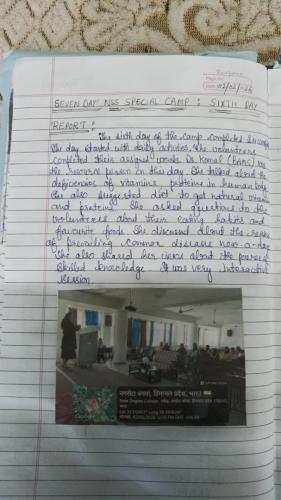 Page No.
Date 02/02/26
SEVEN DAY NSS SPECIAL CAMP : SIXTH DAY
REPORT :
The sixth day of the camp completed
The day started with daily activities. The volunteers
completed their assigned works. Dr. Komal (BAMS) was
the resource person on this day. She talked about the
deficiencies of vitamins, proteins in human body.
She also suggested diet to get natural vitamins
and proteins. She asked questions to the
volunteers about their eating habits and
favourite foods. She discussed about the
of prevailing common disease now-a-days
She also shared her views about the
skilled knowledge. It was very interactive
session.
नगरोटा बगवां, हिमाचल प्रदेश, भारत
Google